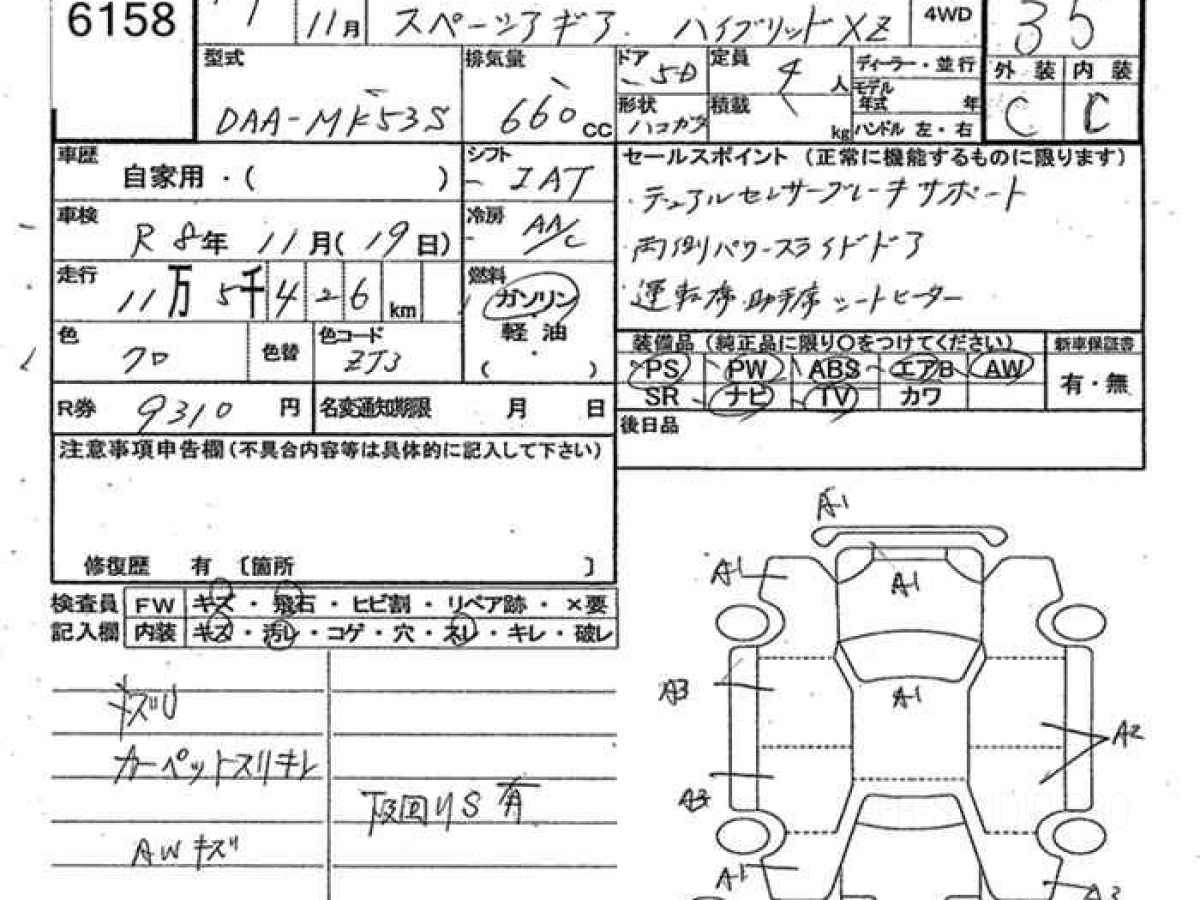 6158
11月 スペーシアギア ハイブリッドXZ 4WD 35
型式 DAA-MK53S
排気量 660 cc
ドア 5D 定員 4人
形状 ハコガタ 積載 kg
ディーラー・並行
モデル年式 年
ハンドル 左・右
外装 内装
C C
車歴 自家用・( )
シフト IAT
車検 R8年 11月(19日)
冷房 AA/C
走行 11万5千426km
燃料 ガソリン・軽油・( )
色 クロ 色替 色コード ZJ3
R券 9310円 名変通知期限 月 日
セールスポイント (正常に機能するものに限ります)
・デュアルセンサーブレーキサポート
・両側パワースライドドア
・運転席・助手席シートヒーター
装備品(純正品に限り〇をつけてください) 新車保証書
PS PW ABS エアB AW 有・無
SR ナビ TV カワ
後日品
注意事項申告欄(不具合内容等は具体的に記入して下さい)
修復歴 有 〔箇所 〕
検査員 FW キズ・飛石・ヒビ割・リペア跡・×要
記入欄 内装 キズ・汚レ・コゲ・穴・スレ・キレ・破レ
キズU
カーペットスリキレ
AWキズ
下回りS有
A1
A1 A1
A3 A1
A2
A3
A1